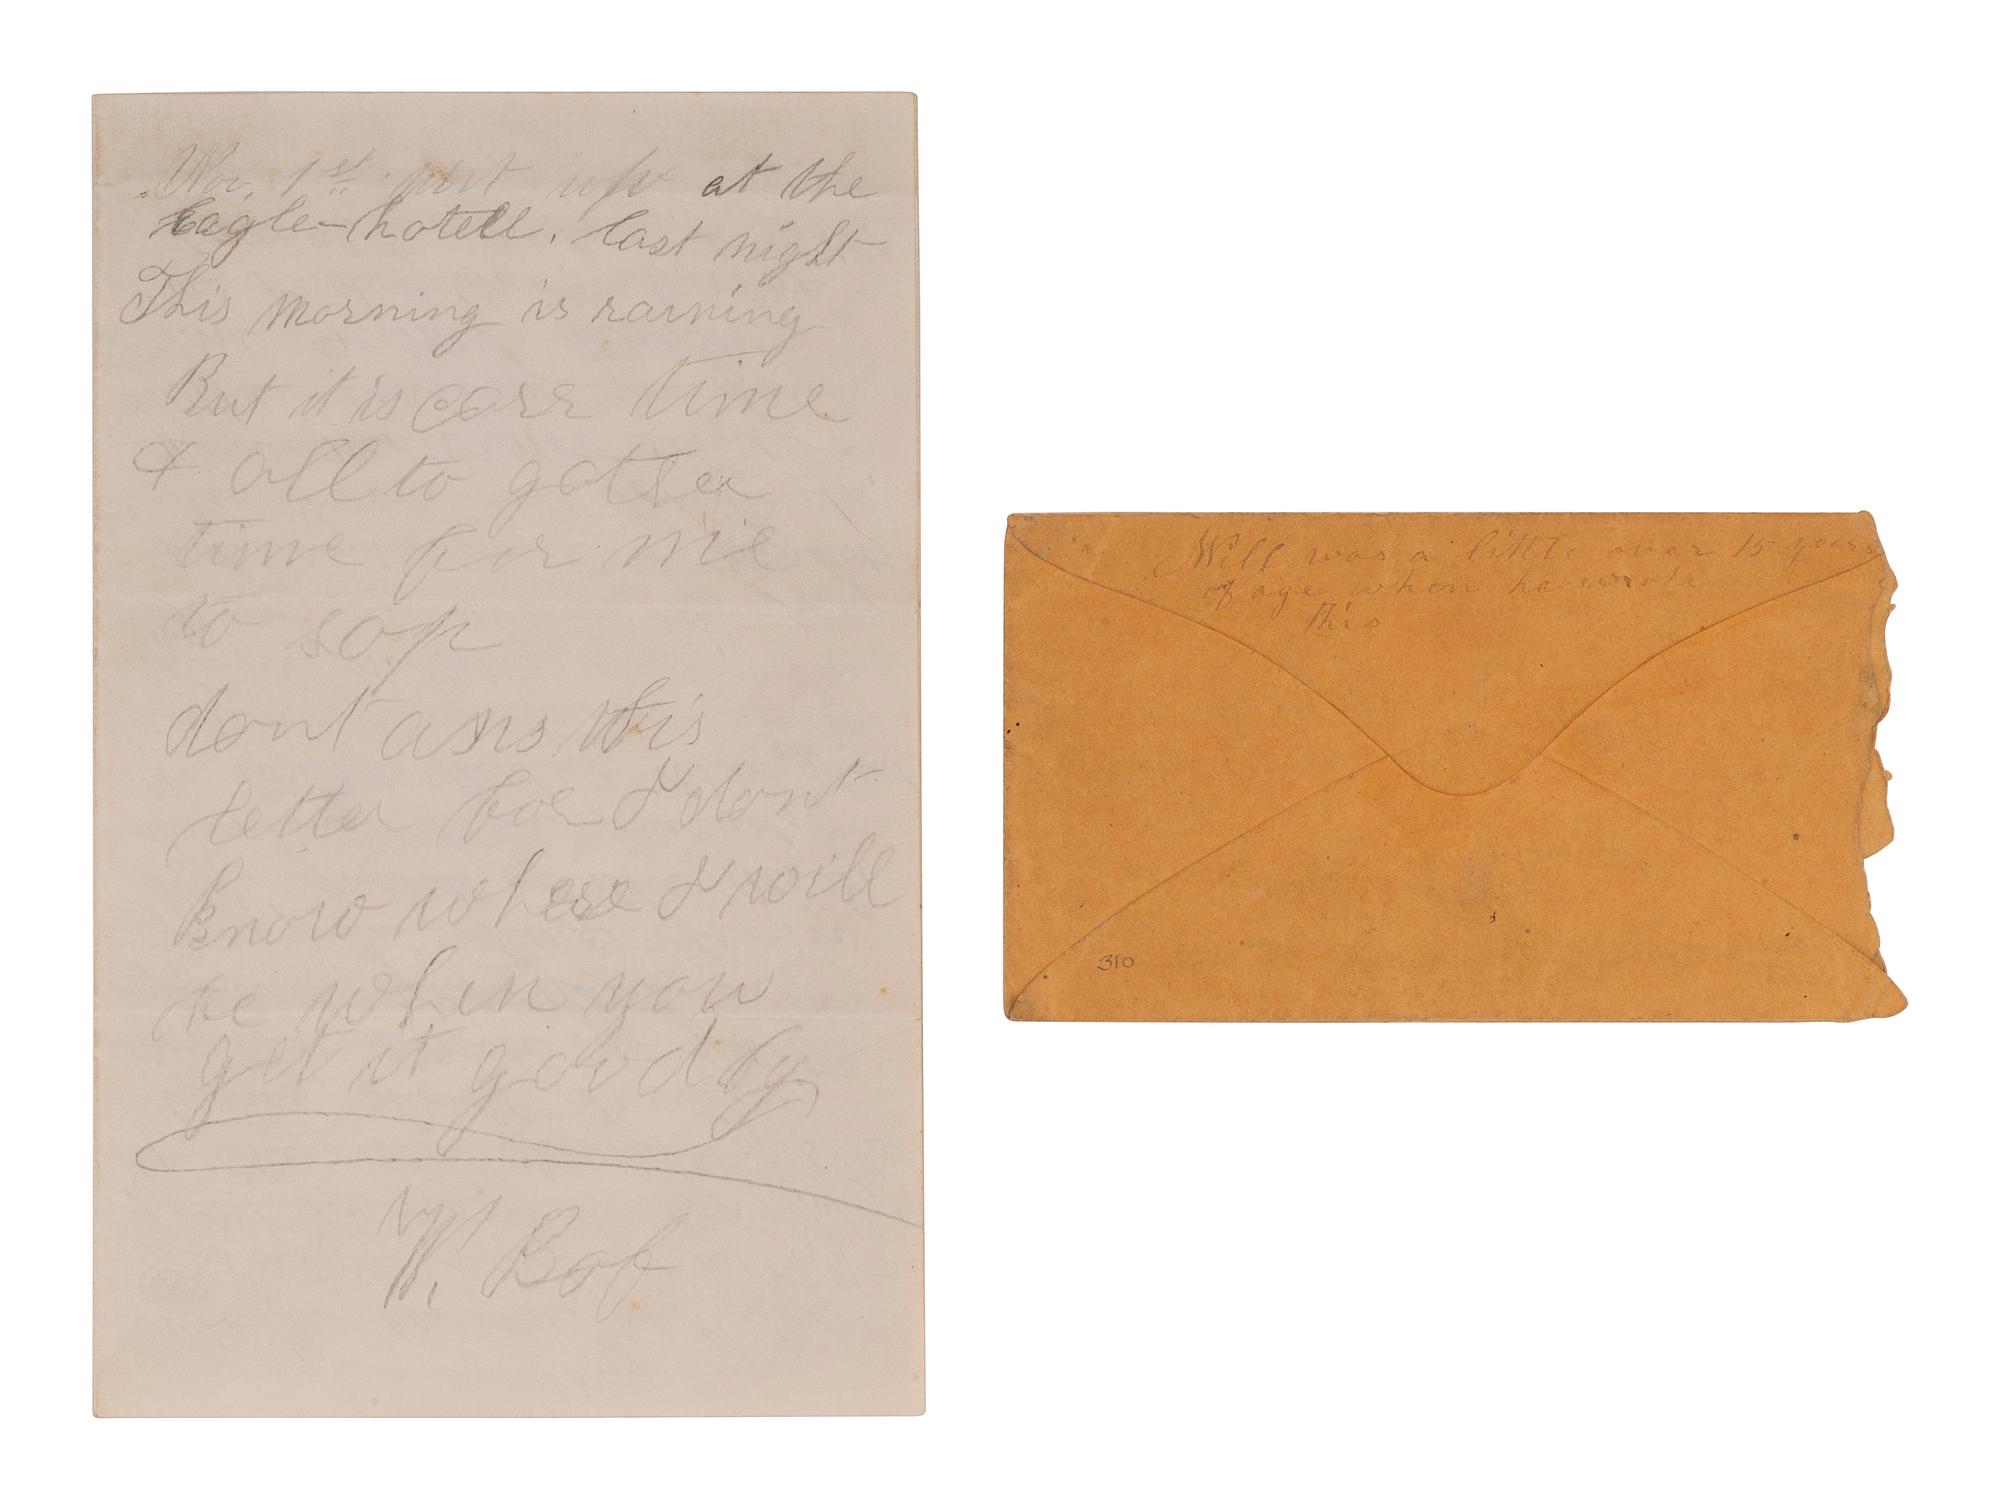 Nov. 1st put up at the
Eagle-hotell. last night
This morning is raining
But it is carr time
& all to gotter
time for me
to sop
dont ans this
letter for I dont
know where I will
be when you
get it good by
W. Bob
Will was a little over 15 years
of age when he wrote
this
310